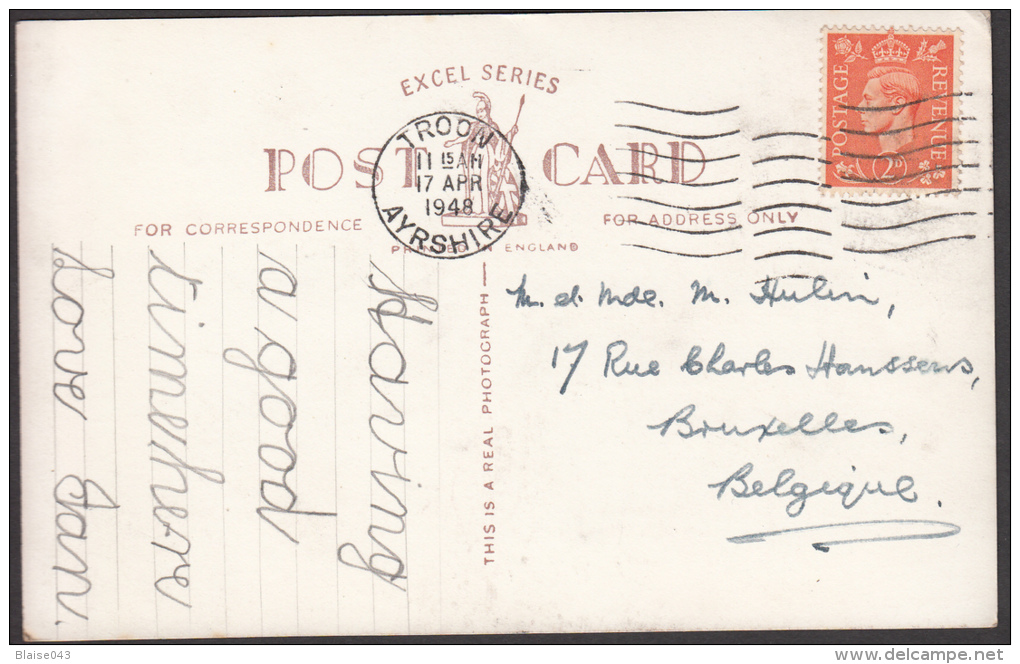 EXCEL SERIES
POST CARD
FOR CORRESPONDENCE
FOR ADDRESS ONLY
PRINTED IN ENGLAND
THIS IS A REAL PHOTOGRAPH
TROON
11 15 AM
17 APR
1948
AYRSHIRE
POSTAGE
REVENUE
2D
Having
a good
time here
Love Ian.
M. et Mde. M. Hulin,
17 Rue Charles Hanssens,
Bruxelles,
Belgique.
Blaise043
delcampe.net